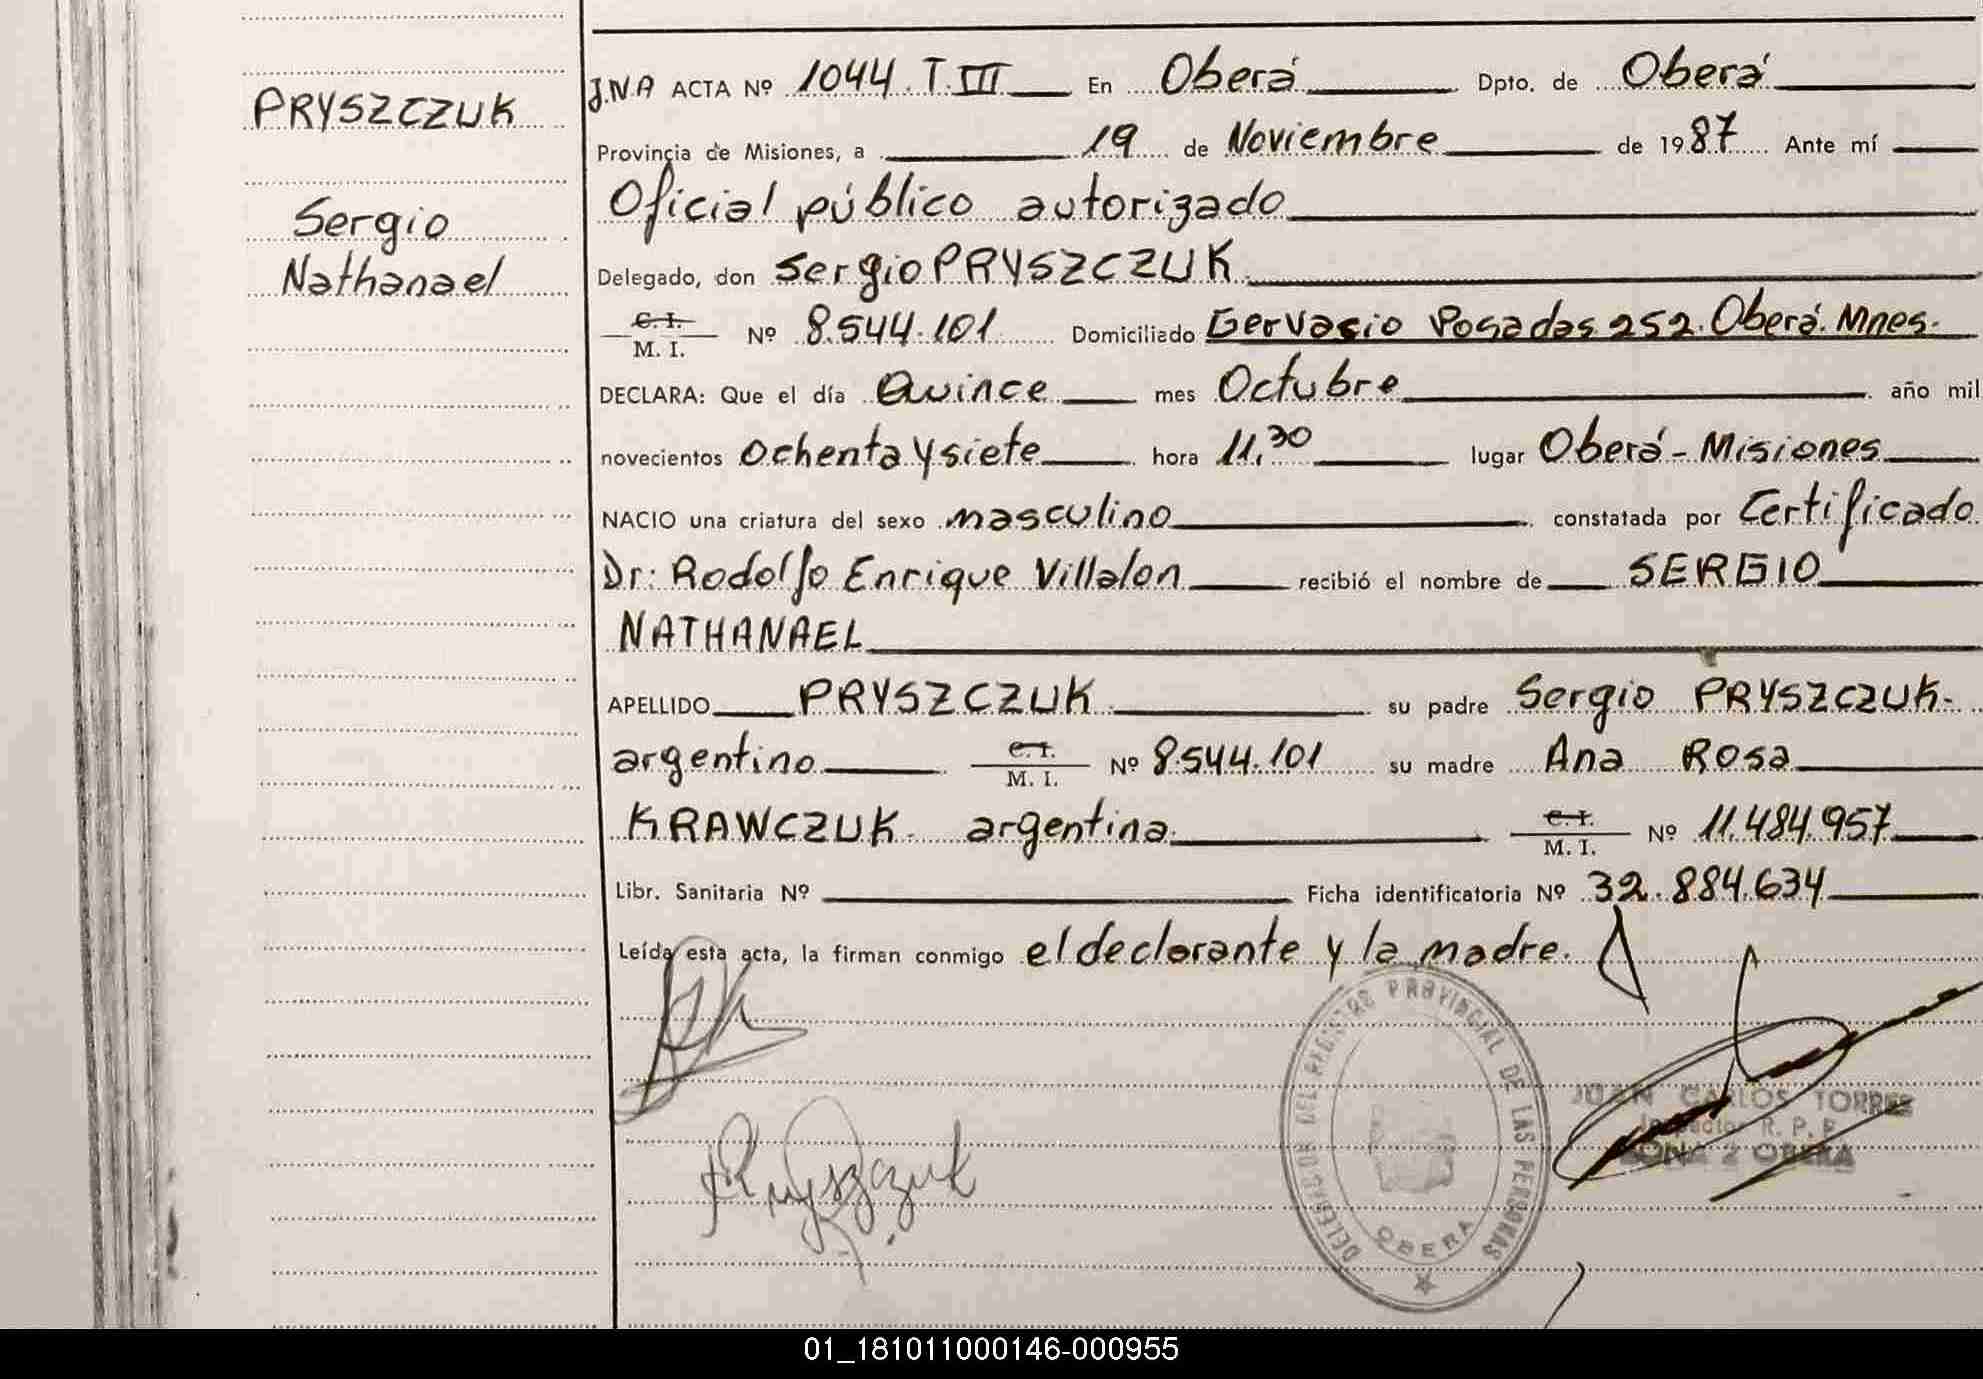 PRYSZCZUK
Sergio
Nathanael
J.N.A ACTA Nº 1044.T.III En Oberá Dpto. de Oberá
Provincia de Misiones, a 19 de Noviembre de 1987 Ante mí
Oficial público autorizado
Delegado, don Sergio PRYSZCZUK
C. I. M. I. Nº 8.544.101 Domiciliado Gervasio Posadas 252. Oberá. Mnes.
DECLARA: Que el día Quince mes Octubre año mil
novecientos Ochenta y siete hora 11,30 lugar Oberá - Misiones
NACIO una criatura del sexo masculino constatada por Certificado
Dr: Rodolfo Enrique Villalon recibió el nombre de SERGIO
NATHANAEL
APELLIDO PRYSZCZUK su padre Sergio PRYSZCZUK-
argentino C. I. M. I. Nº 8.544.101 su madre Ana Rosa
KRAWCZUK argentina C. I. M. I. Nº 11.484.957
Libr. Sanitaria Nº Ficha identificatoria Nº 32.884.634
Leída esta acta, la firman conmigo el declarante y la madre.
DELEGADOS DEL REGISTRO PROVINCIAL DE LAS PERSONAS
OBERA
JUAN CARLOS TORRES
Inspector R. P. P.
ZONA 2 OBERA
Pryszczuk
01_181011000146-000955